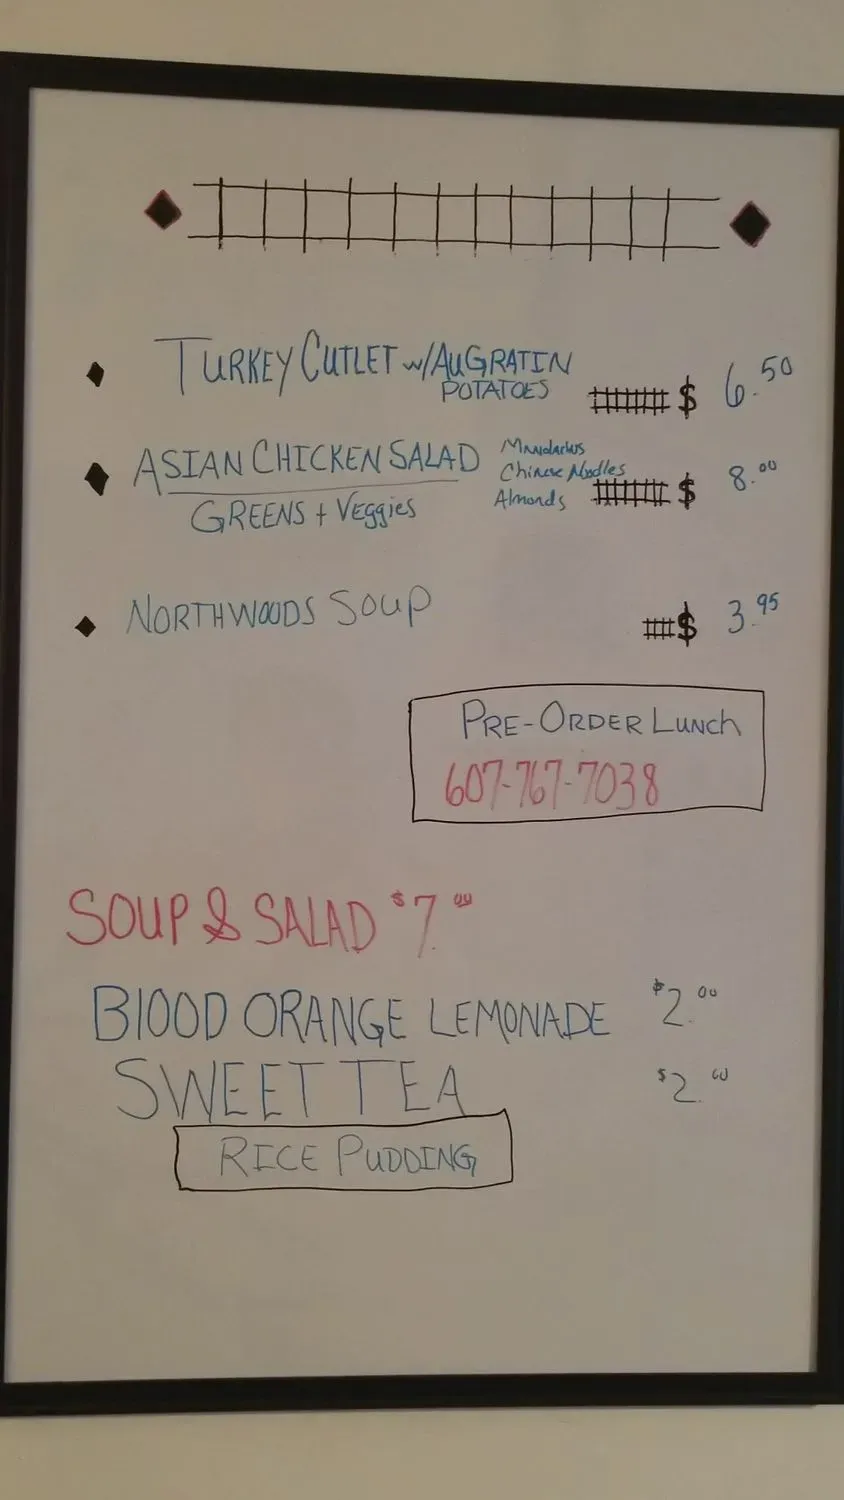 TURKEY CUTLET w/AUGRATIN
POTATOES
$ 6.50
ASIAN CHICKEN SALAD
Mandarins
Chinese Noodles
Almonds
$ 8.00
GREENS + Veggies
NORTHWOODS SOUP
$ 3.95
PRE-ORDER LUNCH
607-767-7038
SOUP & SALAD $7.00
BLOOD ORANGE LEMONADE $2.00
SWEET TEA $2.00
RICE PUDDING